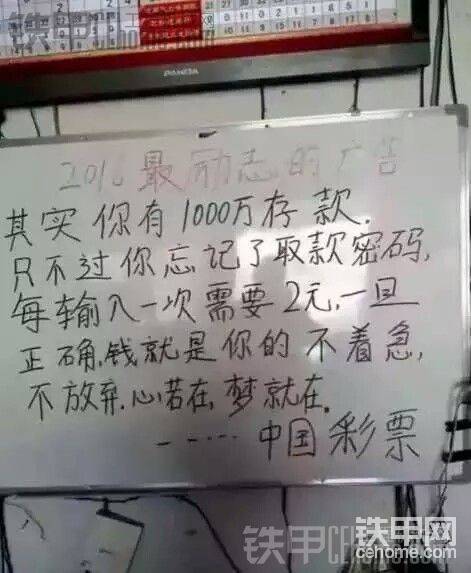 PANDA
2016最励志的广告
其实你有1000万存款.
只不过你忘记了取款密码,
每输入一次需要2元,一旦
正确,钱就是你的不着急,
不放弃.心若在,梦就在.
-----中国彩票
铁甲网
cehome.com